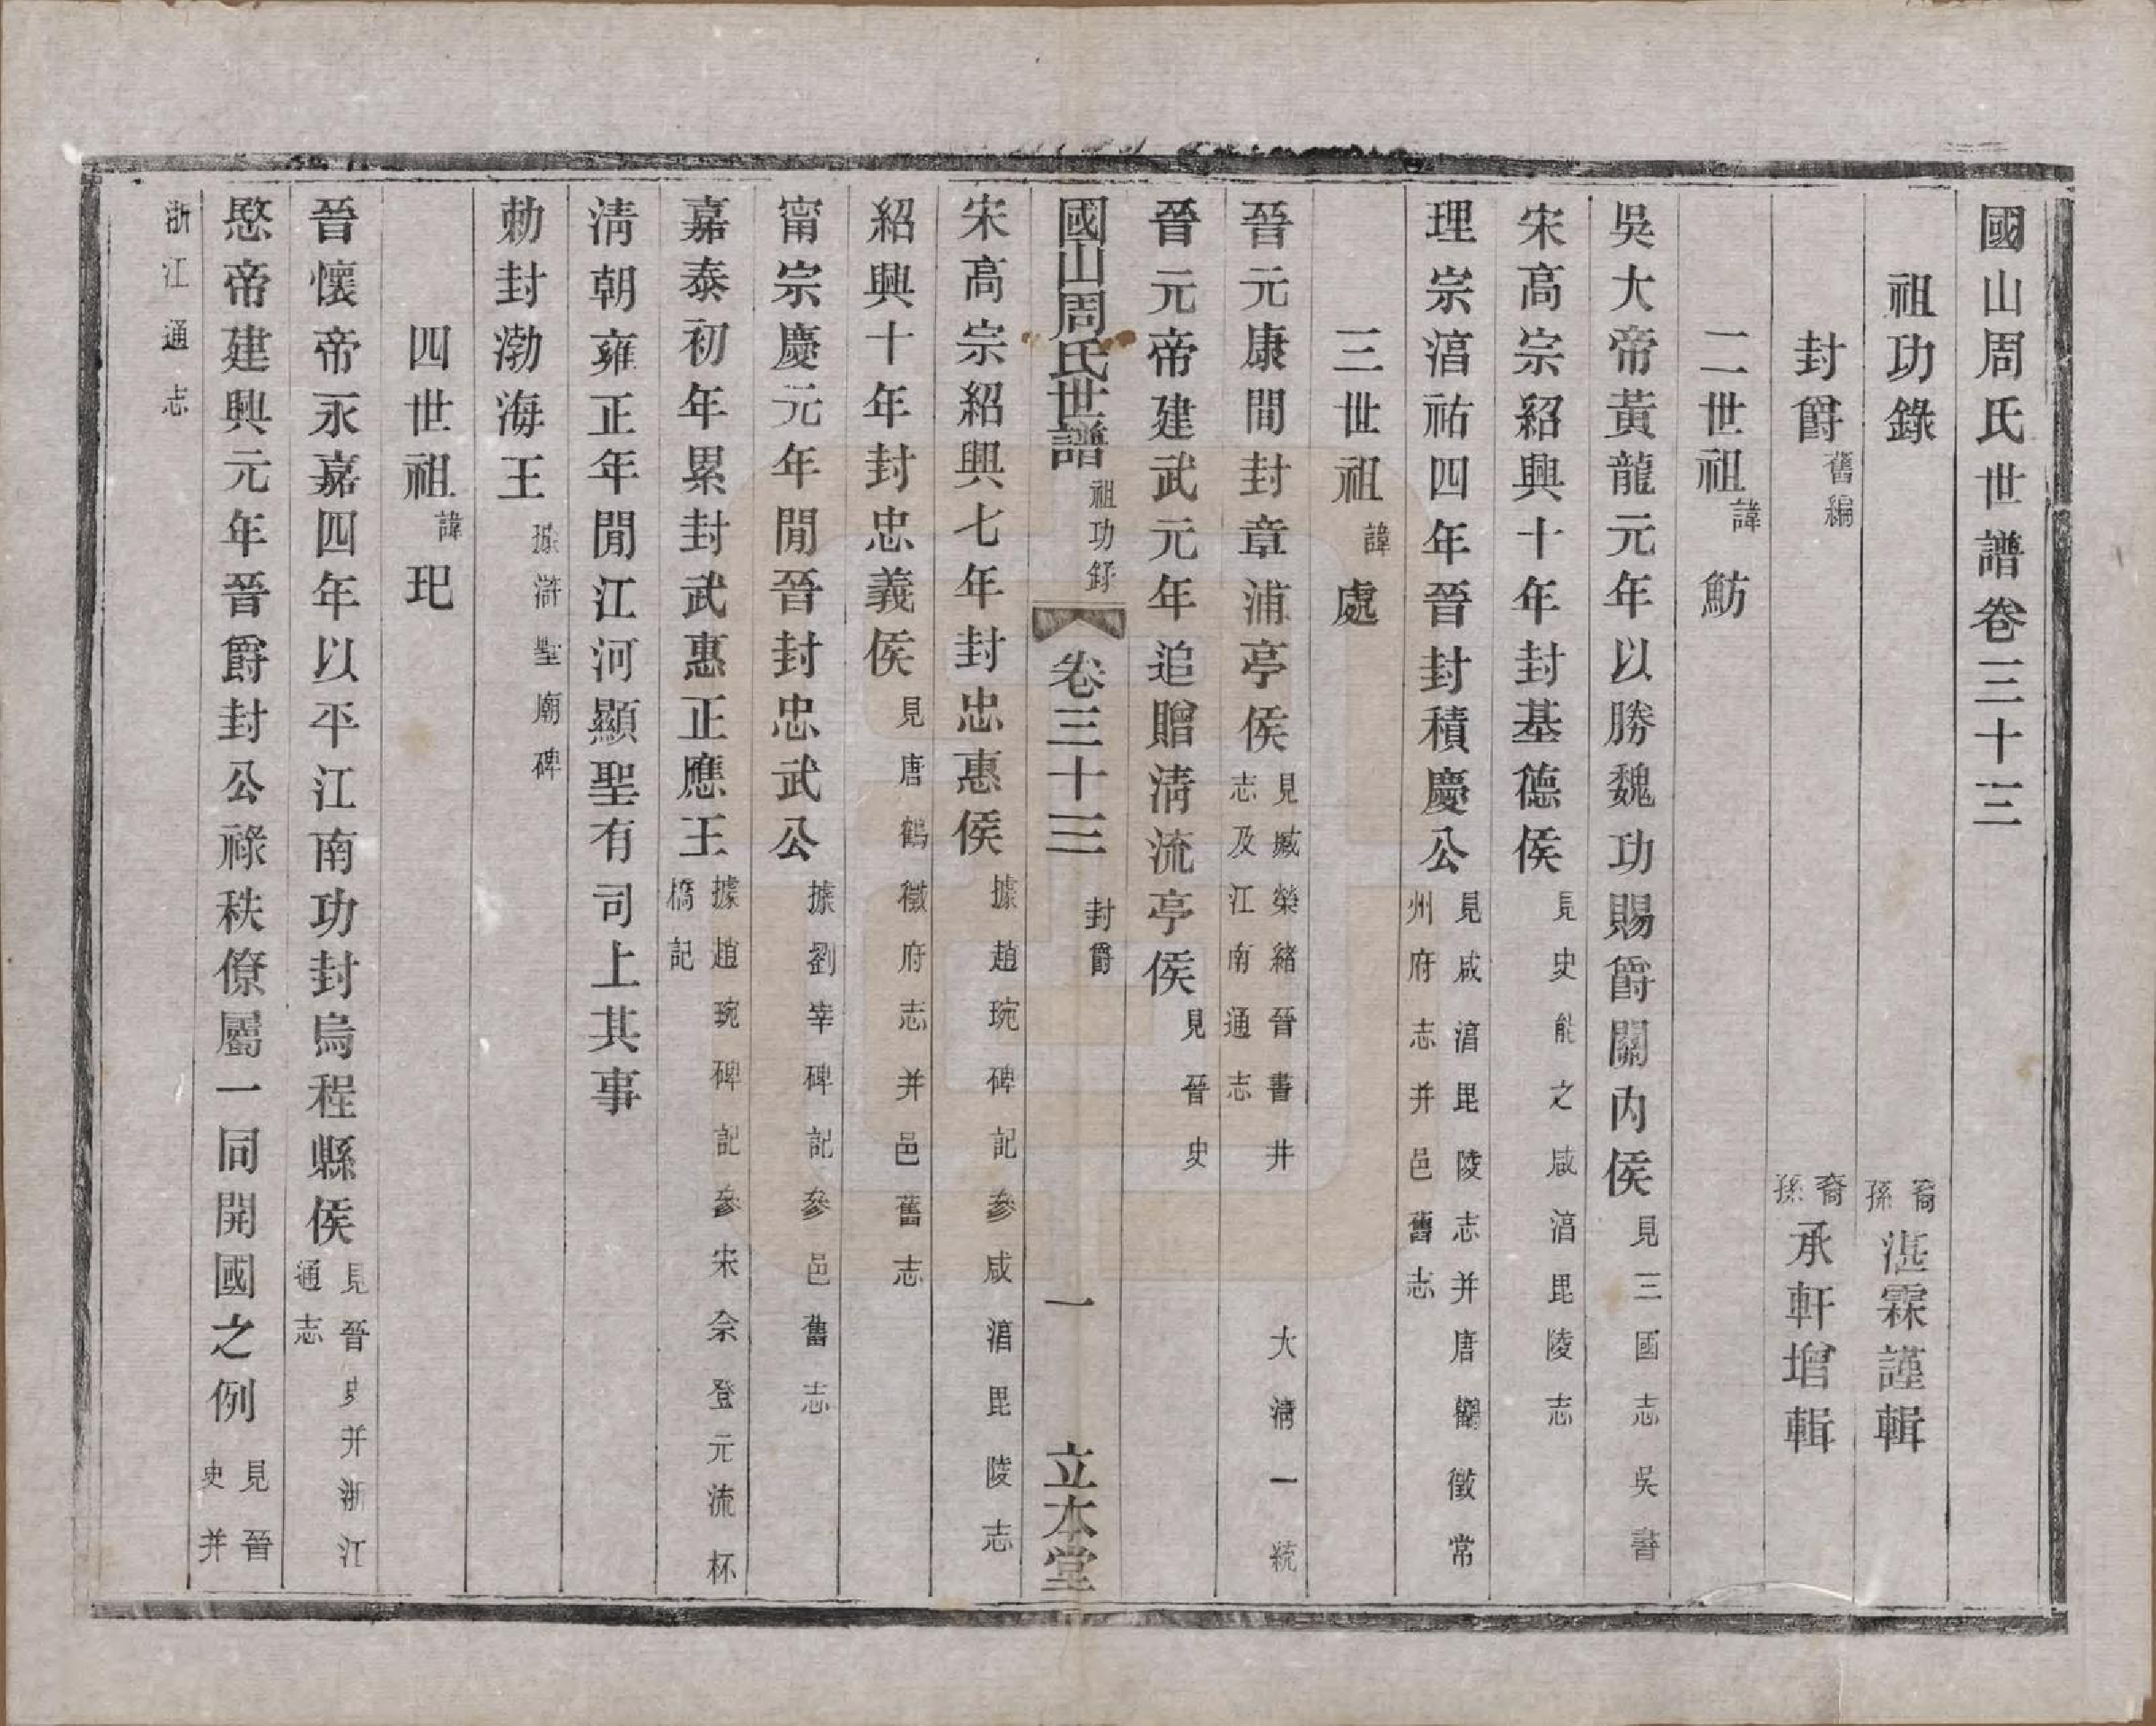 國山周氏世譜卷三十三
祖功錄 裔孫湛霖謹輯
封爵舊編 裔孫承軒增輯
二世祖諱魴
吳大帝黃龍元年以勝魏功賜爵關內侯見三國志吳書
宋高宗紹興十年封基德侯見史能之咸淯毘陵志
理宗淯祐四年晉封積慶公見咸淯毘陵志并唐鶴徵常州府志并邑舊志
三世祖諱處
晉元康間封章浦亭侯見臧榮緒晉書并大淸一統志及江南通志
晉元帝建武元年追贈淸流亭侯見晉史
國山周氏世譜 祖功錄 卷三十三 封爵 一 立本堂
宋高宗紹興七年封忠惠侯據趙琬碑記參咸淯毘陵志
紹興十年封忠義侯見唐鶴徵府志并邑舊志
甯宗慶元年閒晉封忠武公據劉宰碑記參邑舊志
嘉泰初年累封武惠正應王據趙琬碑記參宋佘登元流杯橋記
淸朝雍正年閒江河顯聖有司上其事
勅封渤海王據滸聖廟碑
四世祖諱玘
晉懷帝永嘉四年以平江南功封烏程縣侯見晉史并浙江通志
愍帝建興元年晉爵封公祿秩僚屬一同開國之例見晉史并
浙江通志